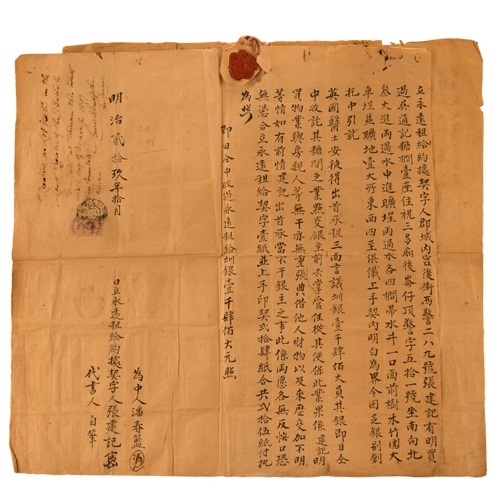 立永遠租給約據契字人郡城內宮後街西警二八九號張建記有明買
過吳通記糖櫊壹座住祝三多廟後崙仔頂警字五拾一號坐南向北
叁大進兩過水中進曠埕兩過水各四櫊帶水井一口西前樹木竹圍大
車埕並曠地壹大所東西四至俱儎上手契內明白為界今因乏銀別創
托中引就
英國醫士安彼得出首承租三面言議圳銀壹千肆佰大員其銀即日仝
中收訖其糖間之業點交銀主前去掌管任從其便保此業果係建記明
買物業與房親人等無干亦無重張典借他人財物以及來歷交加不明
等情如有前情建記出首承當不干銀主之事此係兩愿各無反悔口恐
無憑合立永遠租給契字壹紙並上手印契弍拾肆紙合共弍拾伍紙付執
為炤
即日仝中收過永遠租給圳銀壹千肆佰大元照
為中人潘春籃
明治貳拾玖年拾月 日立永遠租給約據契字人張建記
代書人 自筆